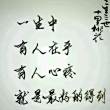 一生中
有人在乎
有人心疼
就是最好的得到